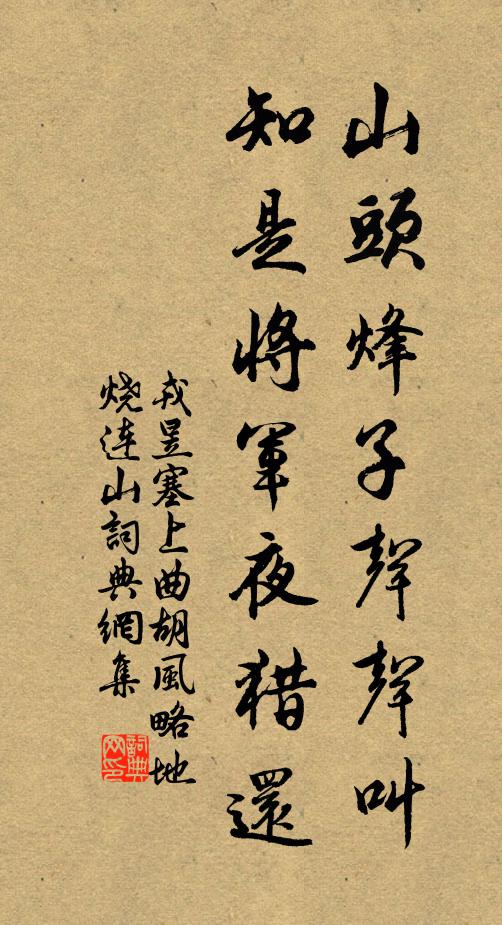 山頭烽子聲聲叫
知是將軍夜猎還
戎昱塞上曲胡風略地
烧连山詞典網集
詞典
网印